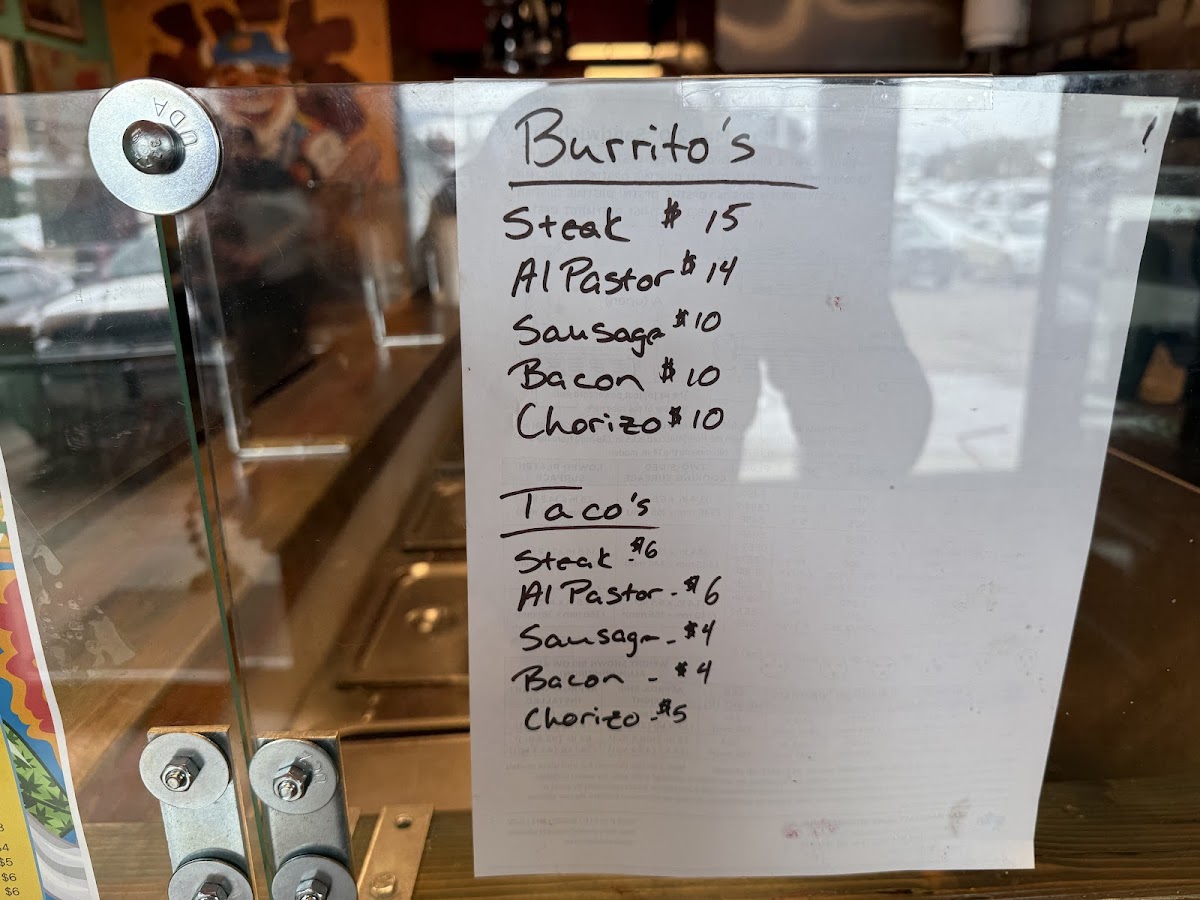 UDA
Burrito's
Steak $15
Al Pastor $14
Sausage $10
Bacon $10
Chorizo $10
Taco's
Steak - $6
Al Pastor - $6
Sausage - $4
Bacon - $4
Chorizo - $5
$5
$6
$6